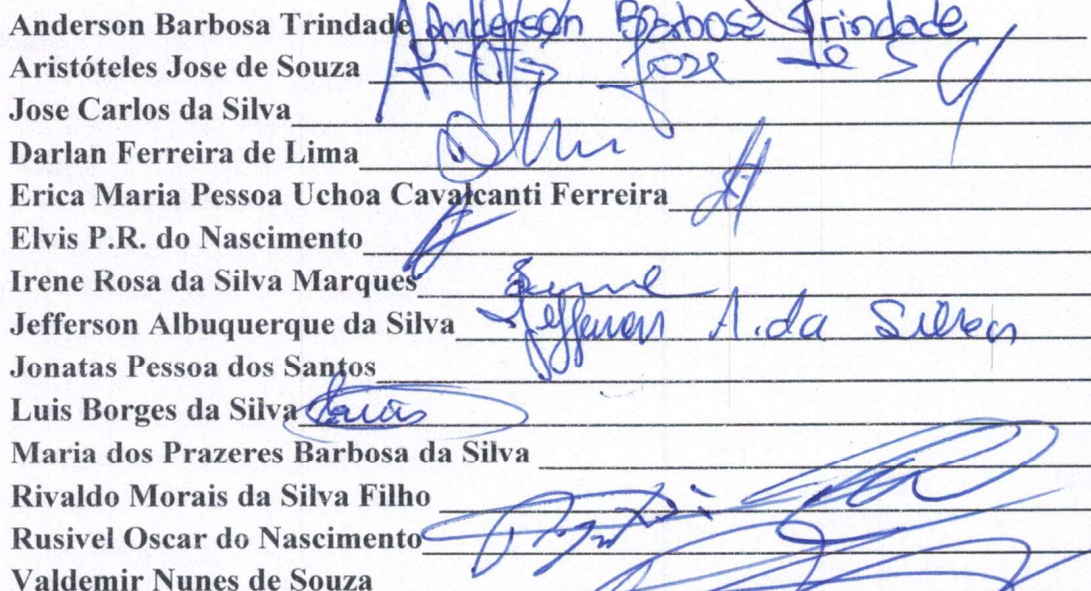 Anderson Barbosa Trindade Anderson Barbosa Trindade
Aristóteles Jose de Souza Jose de S
Jose Carlos da Silva
Darlan Ferreira de Lima
Erica Maria Pessoa Uchoa Cavalcanti Ferreira
Elvis P.R. do Nascimento
Irene Rosa da Silva Marques Irene
Jefferson Albuquerque da Silva Jefferson A. da Silva
Jonatas Pessoa dos Santos
Luis Borges da Silva Luis
Maria dos Prazeres Barbosa da Silva
Rivaldo Morais da Silva Filho
Rusivel Oscar do Nascimento
Valdemir Nunes de Souza